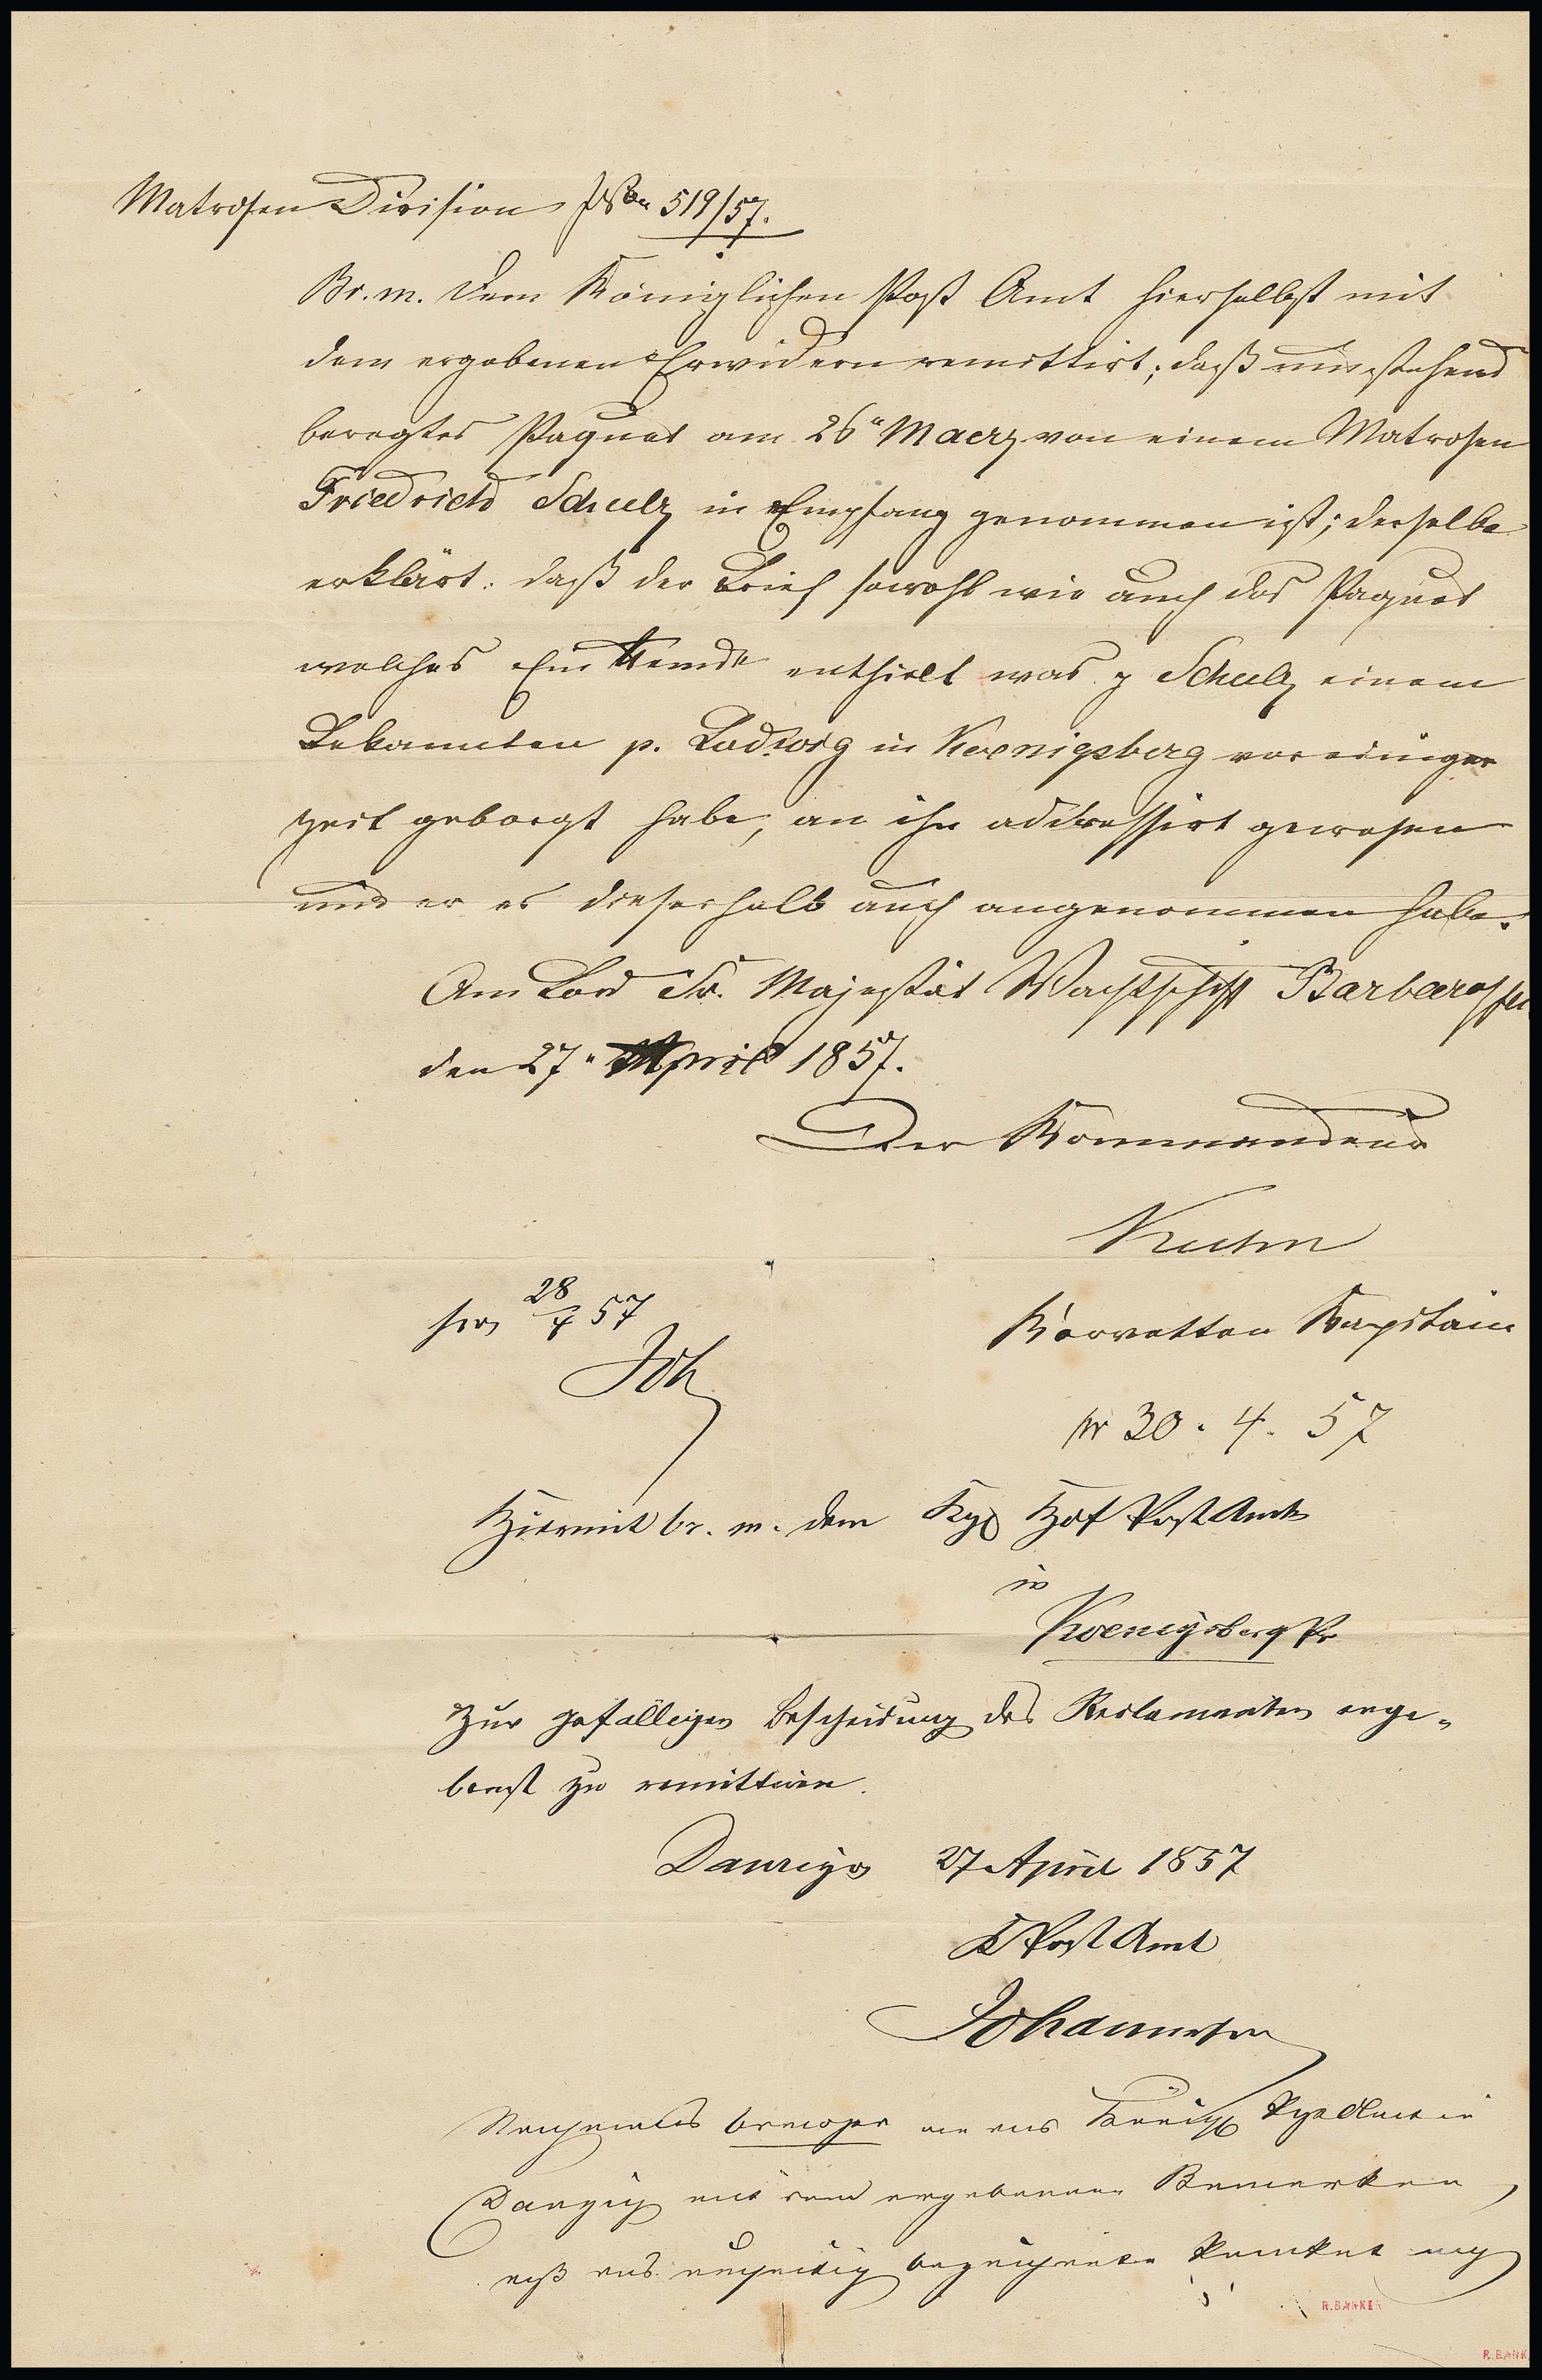 Matrosen Division 519/57.
Br. m. dem Königlichen Post Amt hierselbst mit
dem ergebenen Erwidern remittirt; daß umstehend
beregtes Paquet am 26" Maerz von einem Matrosen
Friedrich Schulz in Empfang genommen ist; derselbe
erklärt: daß der Brief sowohl wie auch das Paquet
welches Ein Hemde enthielt was p Schulz einem
Bekannten p. Ludwig in Koenigsberg vor einiger
Zeit geborgt habe, an ihn addressirt gewesen
und er es dieserhalb auch angenommen habe.
Am Bord Sr. Majestät Wachtschiff Barbarossa
den 27" April 1857.
Der Kommandeur
Kuhn
28/4 57
Korvetten Kapitain
Joh
pr 30. 4. 57
Hiermit br. m. dem Kgl Hof Post Amte
in
Koenigsberg Pr
zur gefälligen Bescheidung des Reclamanten erge-
benst zu remittiren.
Danzig 27 April 1857
K Post Amt
Johannesson
br m. an das Königl Post Amt in
Danzig mit dem ergebenen Bemerken,
daß das umseitig bezeichnete Packet
R.BANKER
R.BANK